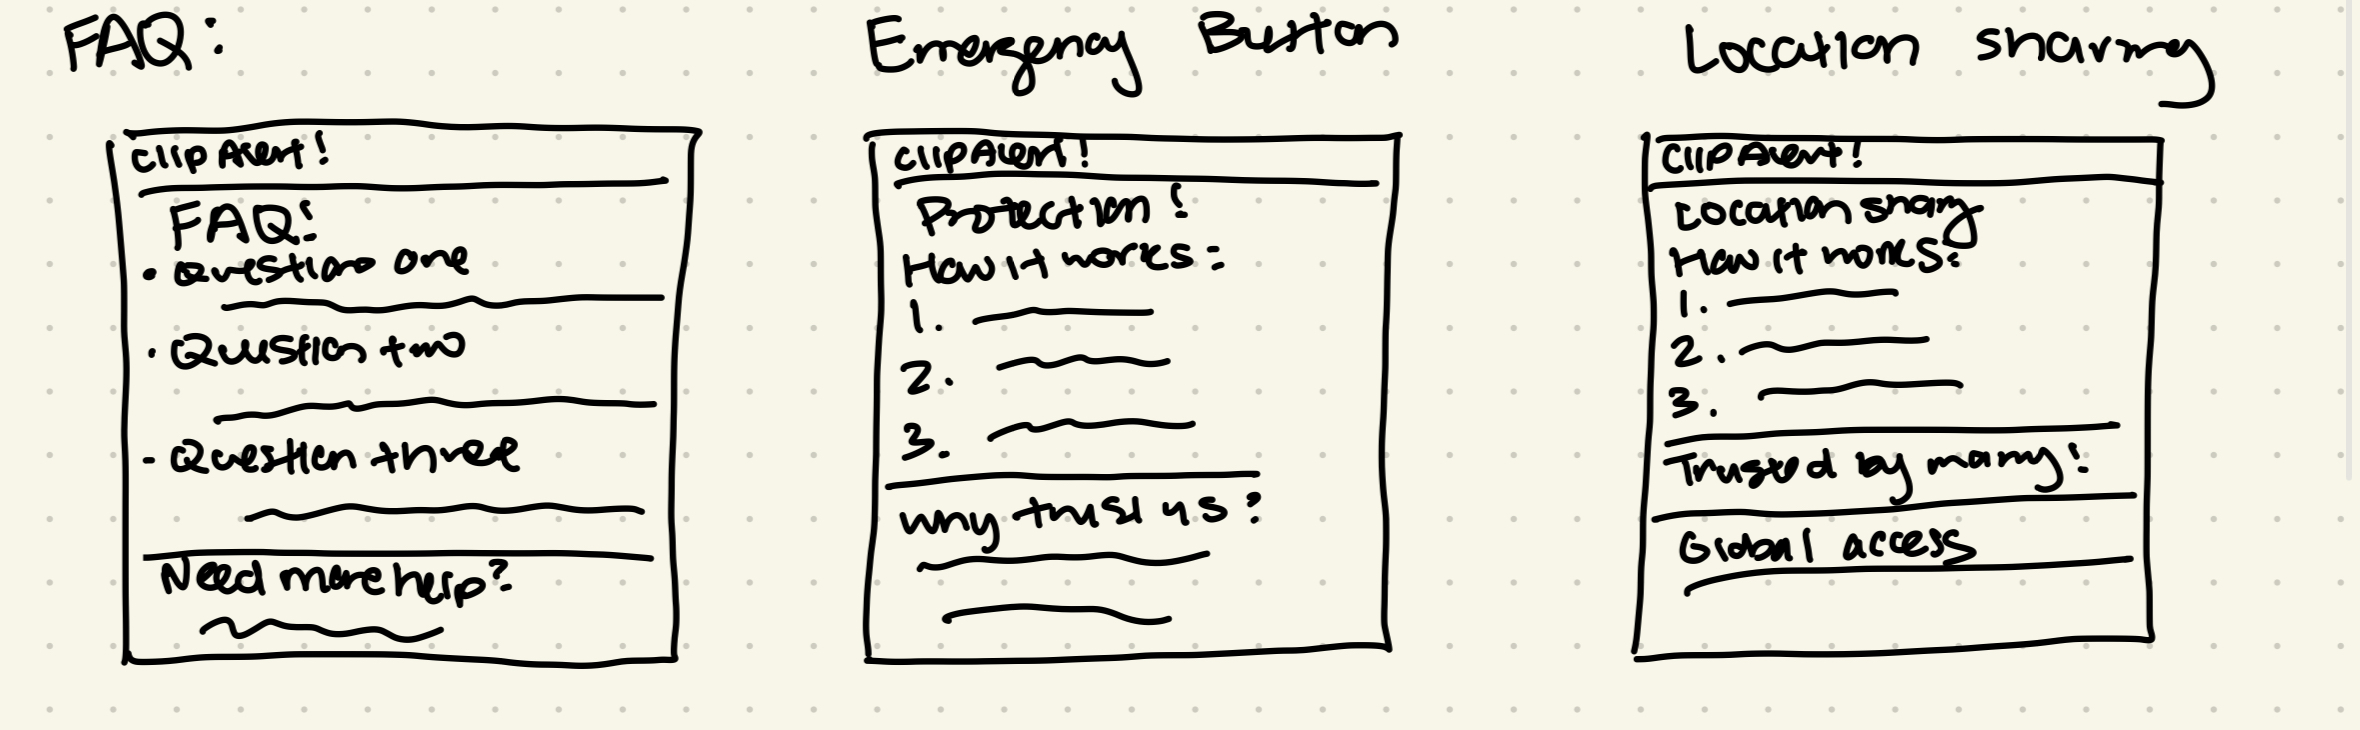 FAQ:
Clip Alert!
FAQ:
• Question one
• Question two
- Question three
Need more help?
Emergency Button
Clip Alert!
Protection!
How it works:
1.
2.
3.
Why trust us?
Location sharing
Clip Alert!
Location sharing
How it works:
1.
2.
3.
Trusted by many!
Global access